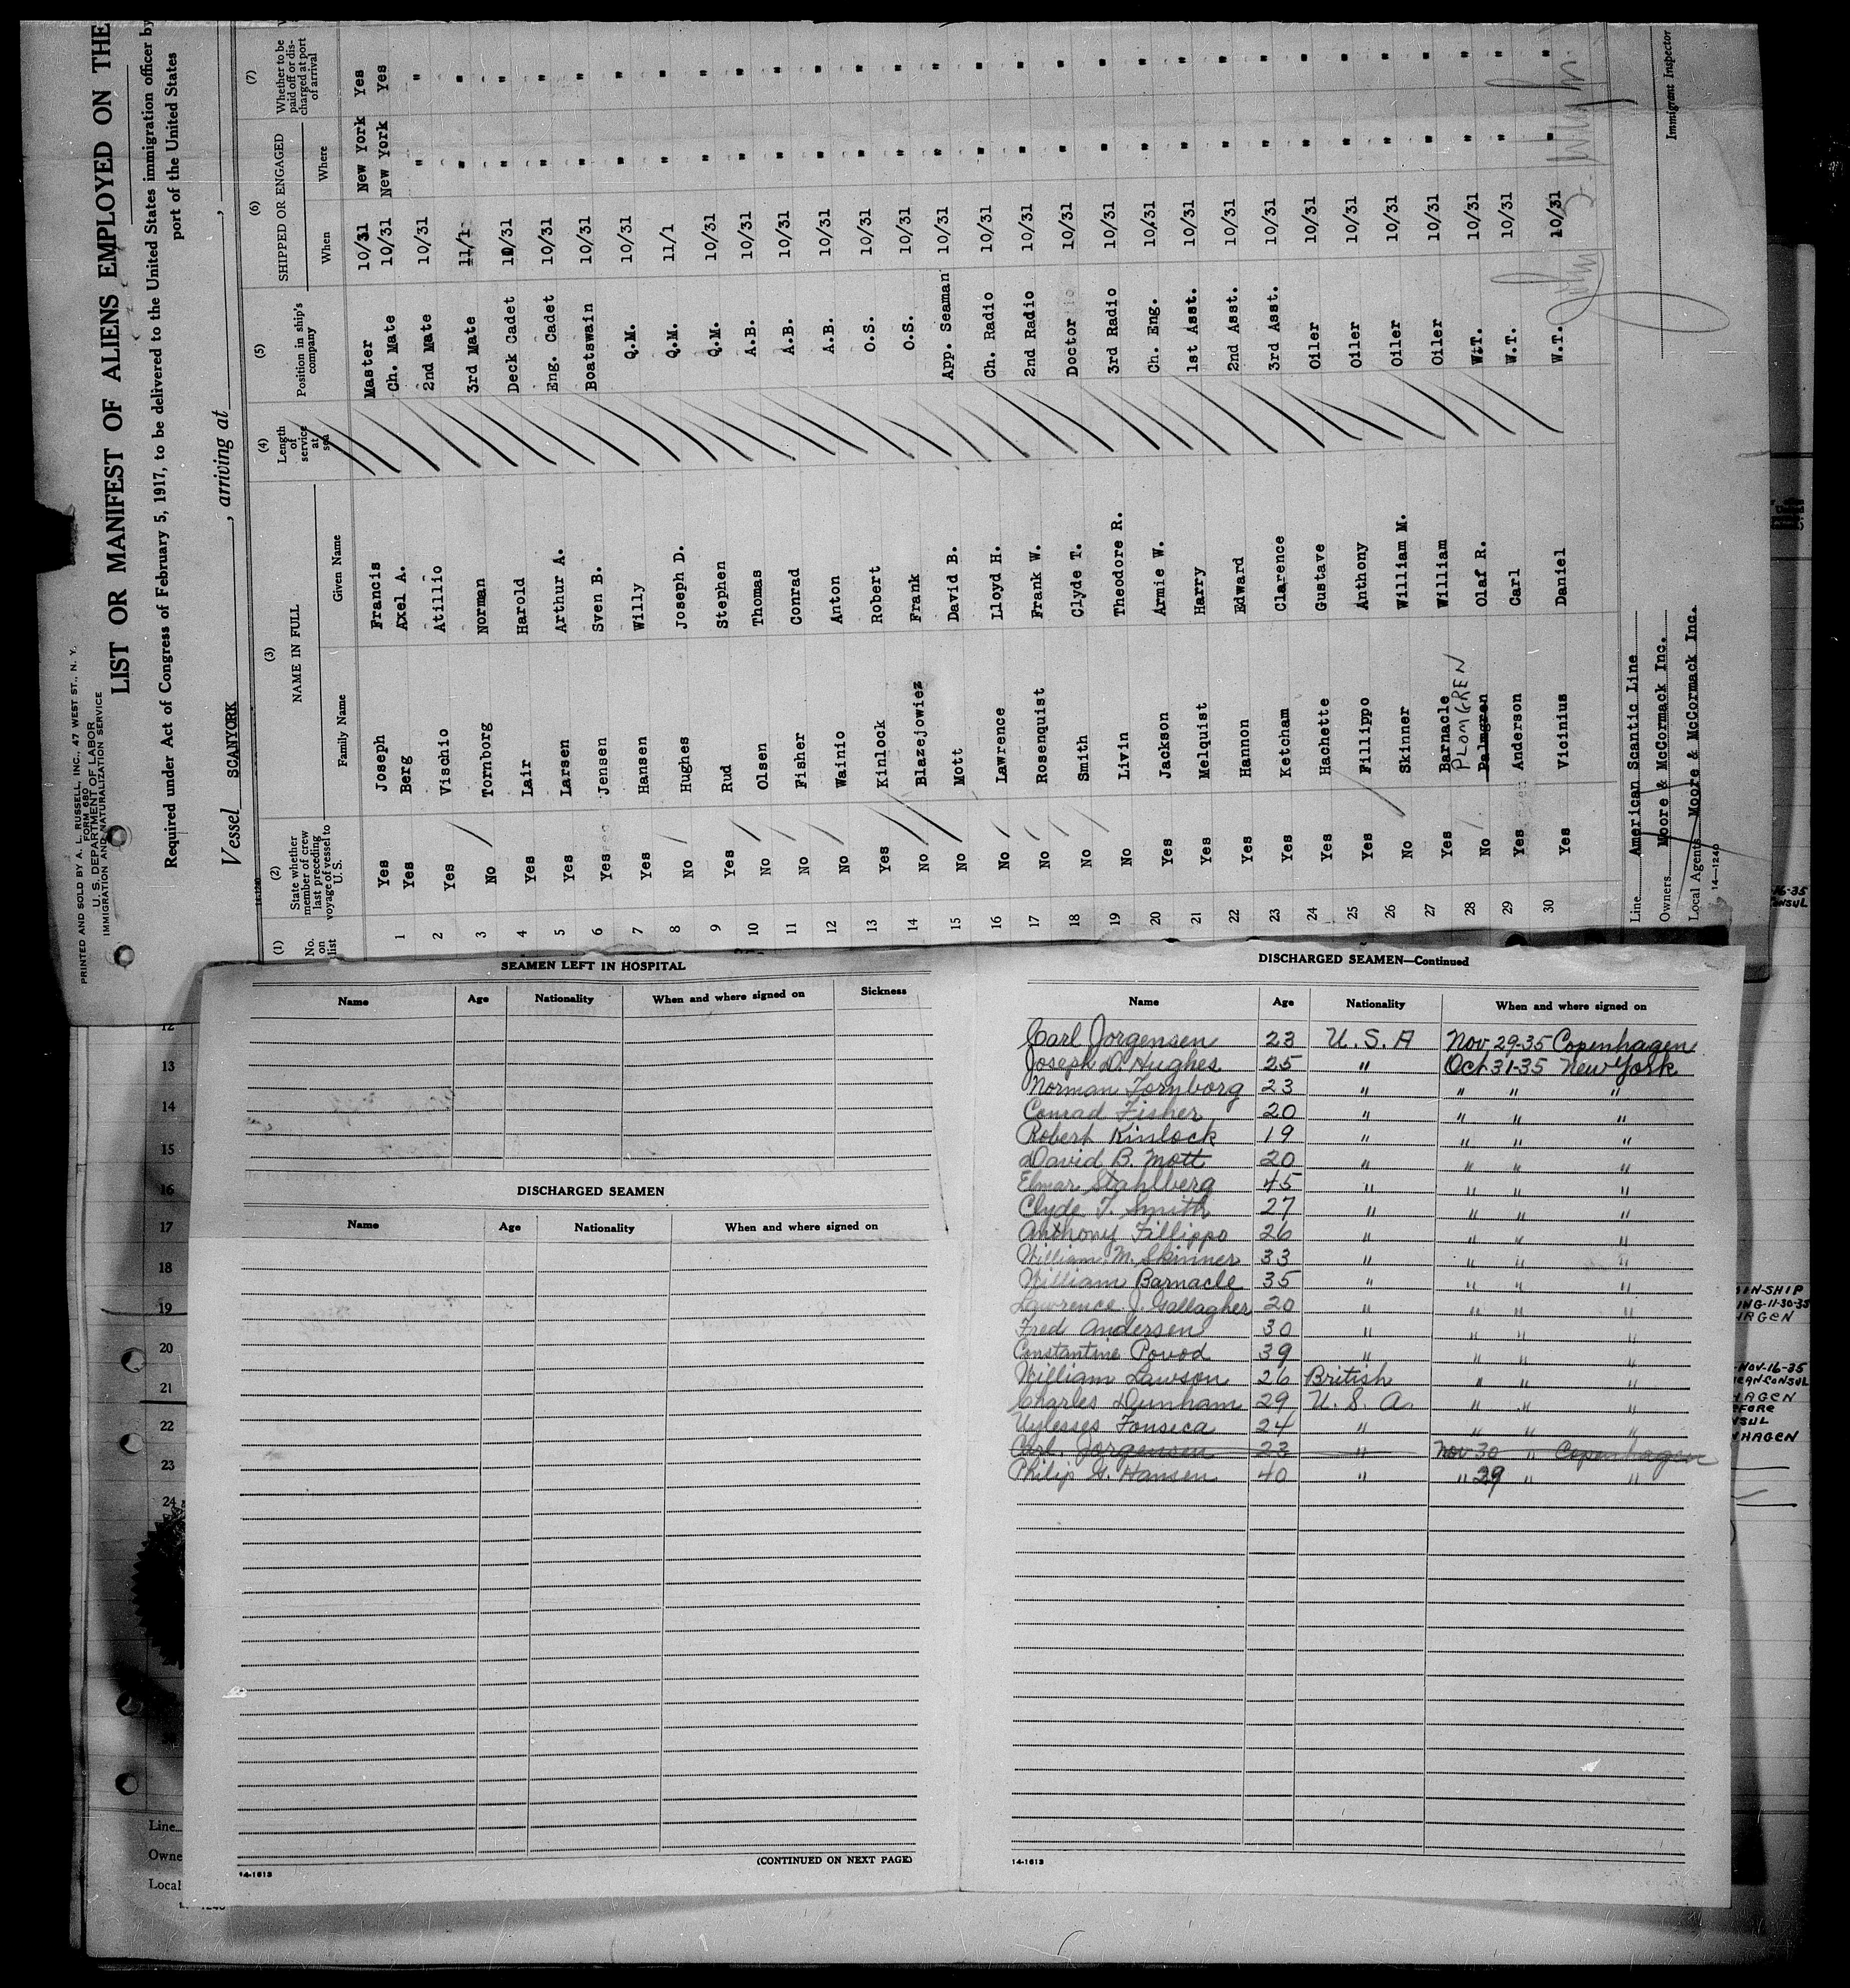 PRINTED AND SOLD BY A. L. RUSSELL, INC., 47 WEST ST., N. Y.
FORM 680
U. S. DEPARTMENT OF LABOR
IMMIGRATION AND NATURALIZATION SERVICE
LIST OR MANIFEST OF ALIENS EMPLOYED ON THE
Required under Act of Congress of February 5, 1917, to be delivered to the United States immigration officer by
port of the United States
Vessel SCANYORK, arriving at
(1) (2) (3) (4) (5) (6) (7)
No. on list State whether member of crew last preceding voyage of vessel to U.S. NAME IN FULL Family Name Given Name Length of service at sea Position in ship's company SHIPPED OR ENGAGED When Where Whether to be paid off or discharged at port of arrival
Yes Joseph Francis Master 10/31 New York Yes
1 Yes Berg Axel A. Ch. Mate 10/31 New York Yes
2 Yes Vischio Atillio 2nd Mate 10/31 " "
3 No Tornborg Norman 3rd Mate 11/1 " "
4 Yes Lair Harold Deck Cadet 10/31 " "
5 Yes Larsen Arthur A. Eng. Cadet 10/31 " "
6 Yes Jensen Sven B. Boatswain 10/31 " "
7 Yes Hansen Willy Q.M. 10/31 " "
8 No Hughes Joseph D. Q.M. 11/1 " "
9 Yes Rud Stephen Q.M. 10/31 " "
10 No Olsen Thomas A.B. 10/31 " "
11 No Fisher Conrad A.B. 10/31 " "
12 No Wainio Anton A.B. 10/31 " "
13 Yes Kinlock Robert O.S. 10/31 " "
14 No Blazejowiez Frank O.S. 10/31 " "
15 No Mott David B. App. Seaman 10/31 " "
16 No Lawrence Lloyd H. Ch. Radio 10/31 " "
17 No Rosenquist Frank W. 2nd Radio 10/31 " "
18 No Smith Clyde T. Doctor 10/31 " "
19 No Livin Theodore R. 3rd Radio 10/31 " "
20 Yes Jackson Armie W. Ch. Eng. 10/31 " "
21 Yes Melquist Harry 1st Asst. 10/31 " "
22 Yes Hannon Edward 2nd Asst. 10/31 " "
23 Yes Ketcham Clarence 3rd Asst. 10/31 " "
24 Yes Hachette Gustave Oiler 10/31 " "
25 Yes Fillippo Anthony Oiler 10/31 " "
26 No Skinner William M. Oiler 10/31 " "
27 Yes Barnacle William Oiler 10/31 " "
PLOMGREN
28 No Palmgren Olaf R. W.T. 10/31 " "
29 Yes Anderson Carl W.T. 10/31 " "
30 Yes Vicinius Daniel W.T. 10/31 " "
Line American Scantic Line
Owners Moore & McCormack Inc.
Immigrant Inspector
Local Agents Moore & McCormack Inc.
14—1240
SEAMEN LEFT IN HOSPITAL
Name Age Nationality When and where signed on Sickness
DISCHARGED SEAMEN
Name Age Nationality When and where signed on
(CONTINUED ON NEXT PAGE)
14-1613
DISCHARGED SEAMEN—Continued
Name Age Nationality When and where signed on
Carl Jorgensen 23 U.S.A Nov 29-35 Copenhagen
Joseph D. Hughes 25 " Oct 31-35 New York
Norman Tornborg 23 " " " "
Conrad Fisher 20 " " " "
Robert Kinlock 19 " " " "
David B. Mott 20 " " " "
Elmar Stahlberg 45 " " " "
Clyde T. Smith 27 " " " "
Anthony Fillippo 26 " " " "
William M. Skinner 33 " " " "
William Barnacle 35 " " " "
Lawrence J. Gallagher 20 " " " "
Fred Andersen 30 " " " "
Constantine Povod 39 " " " "
William Lawson 26 British " " "
Charles Dunham 29 U. S. A. " " "
Uylesses Fonseca 24 " " " "
Carl Jorgensen 23 " Nov 30 " Copenhagen
Philip G. Hansen 40 " " 29 " "
14-1613
12
13
14
15
16
17
18
19
20
21
22
23
24
Line
Owne
Local
16-35
ONSUL
EN-SHIP
ING-11-30-35
HAGEN
NOV-16-35
CAN CONSUL
HAGEN
FORE
NSUL
NHAGEN